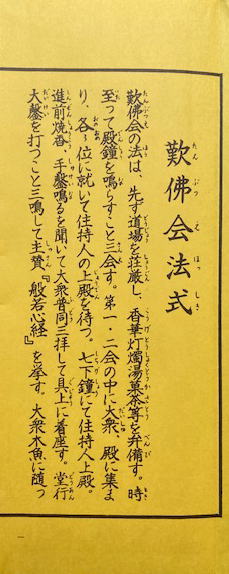 歎佛会法式
歎佛会の法は、先ず道場を荘厳し、香華灯燭湯菓茶等を弁備す。時
至って殿鐘を鳴らすこと三会す。第一・二会の中に大衆、殿に集ま
り、各〻位に就いて住持人の上殿を待つ。七下鐘にて住持人上殿。
進前焼香、手鏧鳴るを聞いて大衆普同三拝して具上に着座す。堂行
大鏧を打つこと三鳴して主賛『般若心経』を挙す。大衆木魚に随っ
一